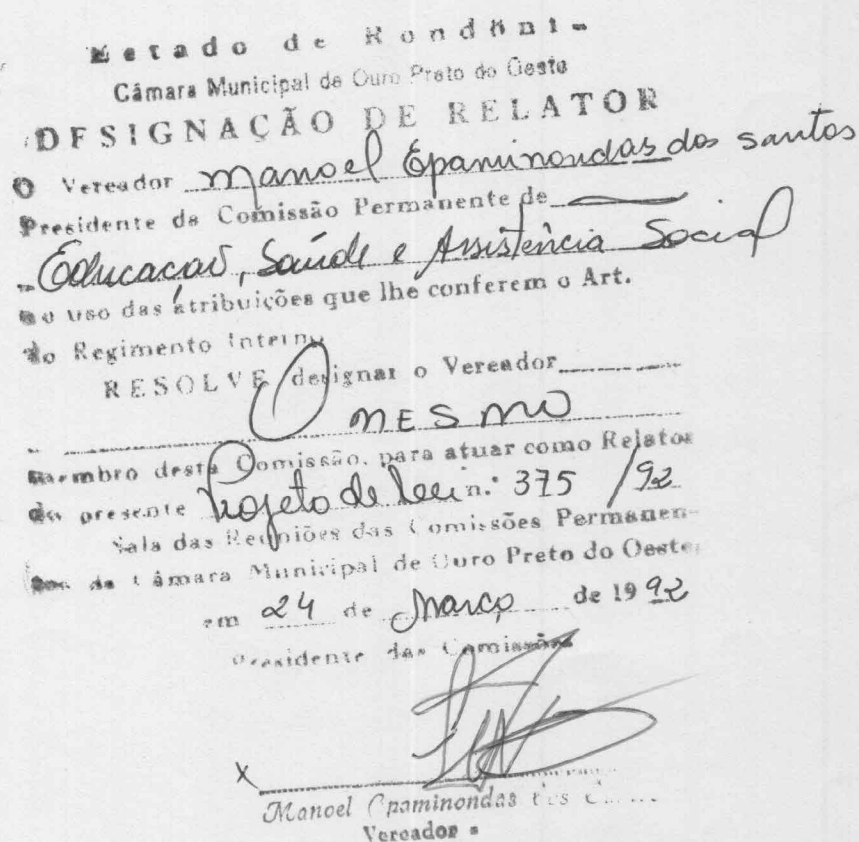 Estado de Rondôni-
Câmara Municipal de Ouro Preto do Oeste
DESIGNAÇÃO DE RELATOR
O Vereador Manoel Epaminondas dos Santos
Presidente da Comissão Permanente de
Educação, Saúde e Assistência Social
no uso das atribuições que lhe conferem o Art.
do Regimento Interno
RESOLVE designar o Vereador
O MESMO
membro desta Comissão, para atuar como Relator
do presente Projeto de Lei n.º 375 /92
Sala das Reuniões das Comissões Permanen-
tes da Câmara Municipal de Ouro Preto do Oeste,
em 24 de Março de 1992
Presidente das Comissões
X
Manoel Epaminondas dos
Vereador